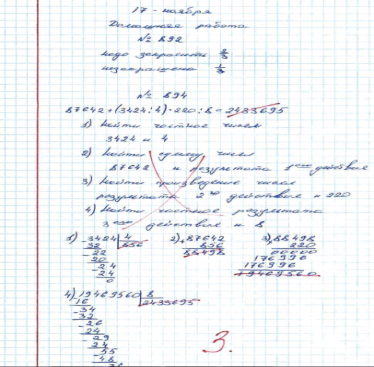 17 - ноября
Домашняя работа
№ 892
надо закрасить 2/3
незакрашено 1/3
№ 894
87642+(3424:4)·220:8=2433695
1) Найти частное чисел
3424 и 4
2) Найти сумму чисел
87642 и результата 1 ого действия
3) Найти произведение числа
результата 2 ого действия и 220
4) Найти частное результата
3 его действия и 8
1) 3424 | 4 2) 87642 3) 88498
32 856 856 220
22 88498 00000
20 176996
24 176996
24 19469560
0
4) 19469560 | 8
16 2433695
34
32
26
24
29
24
55
48
3.